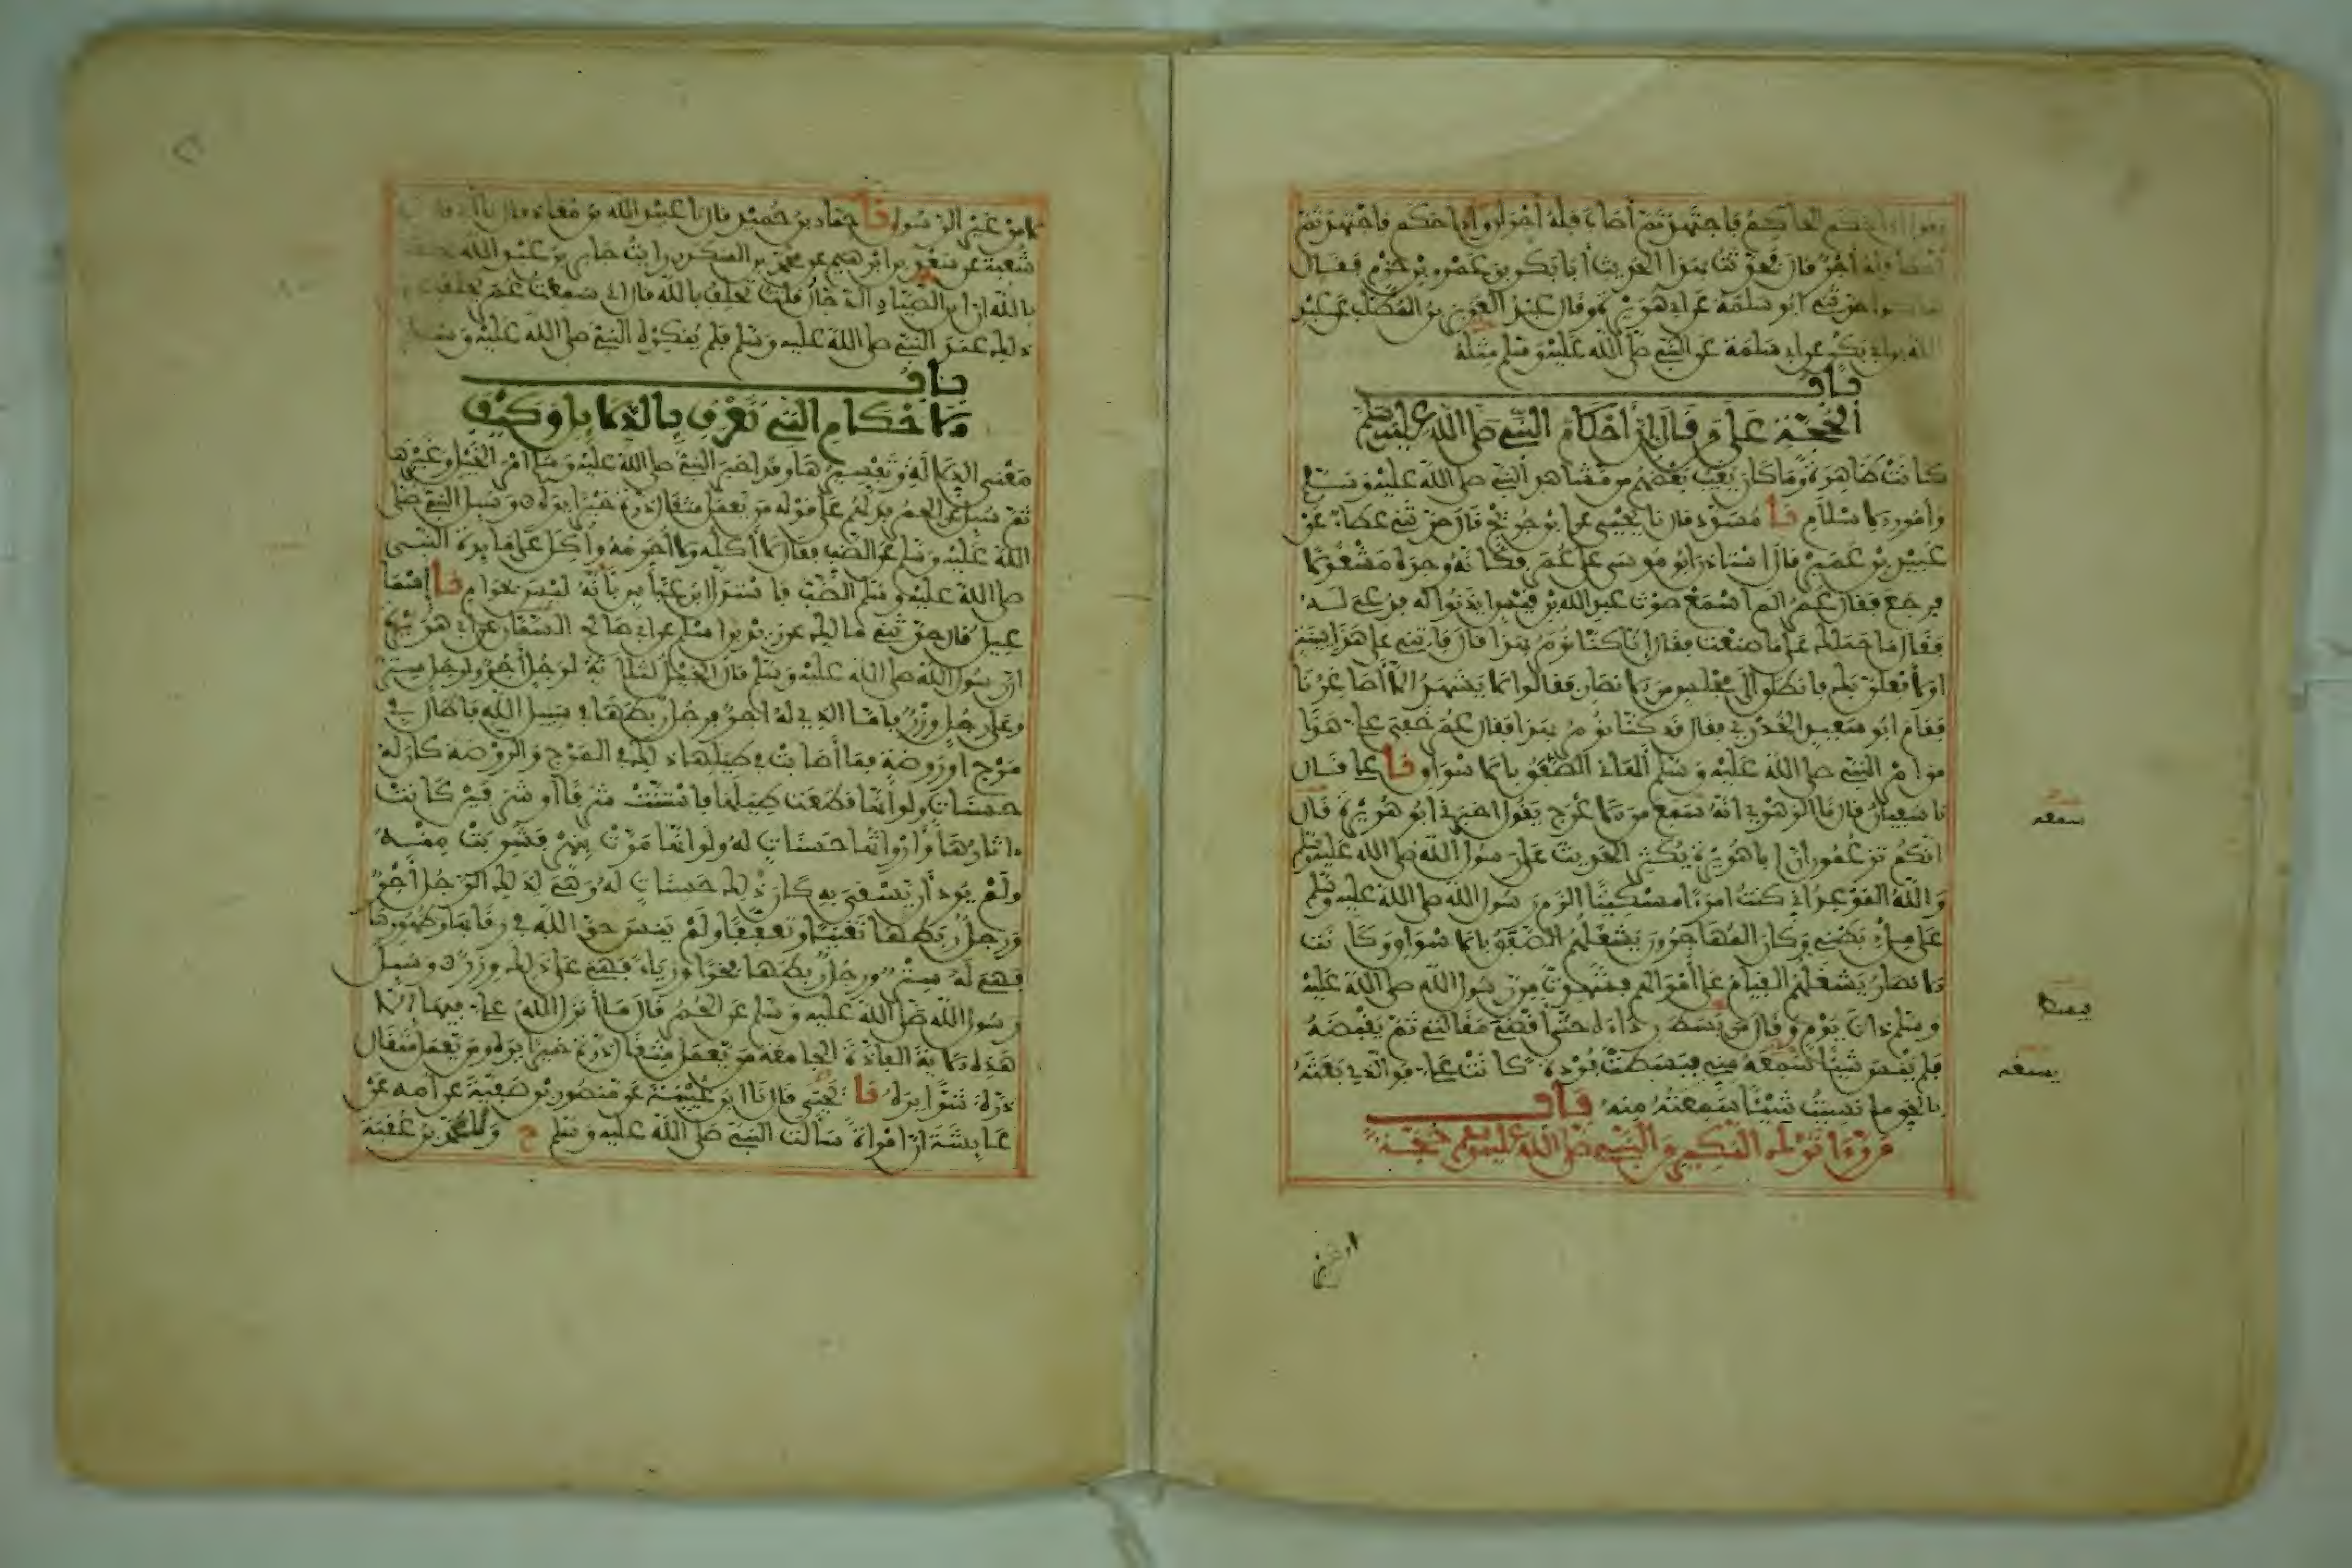 يقول اذا حكم الحاكم فاجتهد ثم أصاب فله أجران واذا حكم فاجتهد ثم
أخطأ فله أجر قال فحدثت بهذا الحديث أبا بكر بن عمرو بن حزم فقال
هكذا حدثني ابو سلمة عن ابي هريرة وقال عبد العزيز بن المطلب عن عبد
الله بن ابي بكر عن ابي سلمة عن النبي صلى الله عليه وسلم مثله
باب
الحجة على من قال إن أحكام النبي صلى الله عليه وسلم
كانت ظاهرة وما كان يغيب بعضهم من مشاهد النبي صلى الله عليه وسلم
وأمور الاسلام نا مسدد قال نا يحيى عن ابن جريج قال حدثني عطاء عن
عبيد بن عمير قال استاذن ابو موسى على عمر فكأنه وجده مشغولا
فرجع فقال عمر الم أسمع صوت عبد الله بن قيس ايذنوا له فدعي لـه
فقال ما حملك على ما صنعت فقال إنا كنا نؤمر بهذا قال فاتني على هذا ببينة
او لأفعلن بك فانطلق إلى مجلس من الانصار فقالوا لا يشهد الا أصاغرنا
فقام ابو سعيد الخدري فقال قد كنا نؤمر بهذا فقال عمر خفي علي هذا
من امر النبي صلى الله عليه وسلم ألهاني الصفق بالاسواق نا علي قال
نا سفيان قال نا الزهري انه سمع من الاعرج يقول اخبرني ابو هريرة قال
انكم تزعمون ان ابا هريرة يكثر الحديث على رسول الله صلى الله عليه وسلم
والله الموعد اني كنت امرءا مسكينا الزم رسول الله صلى الله عليه وسلم
على ملء بطني وكان المهاجرون يشغلهم الصفق بالاسواق وكانت
الانصار يشغلهم القيام على أموالهم فشهدت من رسول الله صلى الله عليه
وسلم ذات يوم وقال من يبسط رداءه حتى أقضي مقالتي ثم يقبضه
فلم ينس شيئا سمعه مني فبسطت بردة كانت علي فوالذي بعثه
بالحق ما نسيت شيئا سمعته منه باب
من رءا ترك النكير من النبي صلى الله عليه وسلم حجة
سمعه
يبسط
يسمعه
لا من غير الرسول نا حماد بن حميد قال نا عبيد الله بن معاذ قال نا أبي قال نا
شعبة عن سعد بن ابرهيم عن محمد بن المنكدر رايت جابر بن عبد الله يحلف
بالله ان ابن الصياد الدجال قلت تحلف بالله قال اني سمعت عمر يحلف على
ذلك عند النبي صلى الله عليه وسلم فلم ينكره النبي صلى الله عليه وسلم
باب
الاحكام التي تعرف بالدلايل وكيف
معنى الدلالة وتفسيرها وقد اخبر النبي صلى الله عليه وسلم امر الخيل وغيرها
ثم سيل عن الحمر فدلهم على قوله من يعمل مثقال ذرة خيرا يره وسيل النبي صلى
الله عليه وسلم عن الضب فقال لا أكله ولا أحرمه وأكل على مايدة النبي
صلى الله عليه وسلم الضب فاستدل ابن عباس بأنه ليس بحرام نا إسما
عيل قال حدثني مالك عن زيد بن اسلم عن ابي صالح السمان عن ابي هريرة
ان رسول الله صلى الله عليه وسلم قال الخيل لثلاثة لرجل أجر ولرجل ستر
وعلى رجل وزر فاما الذي له اجر فرجل ربطها في سبيل الله فاطال في
مرج او روضة فما أصابت في طيلها ذلك في المرج والروضة كان له
حسنات ولو انها قطعت طيلها فاستنت شرفا أو شرفين كانت
ءاثارها وأرواثها حسنات له ولو انها مرت بنهر فشربت منه
ولم يرد أن تسقى به كان ذلك حسنات له وهي لذلك الرجل أجر
ورجل ربطها تغنيا وتعففا ولم ينس حق الله في رقابها ولا ظهورها
فهي له ستر ورجل ربطها فخرا ورياء فهي على ذلك وزر وسيل
رسول الله صلى الله عليه وسلم عن الحمر قال ما انزل الله علي فيها الا
هذه الاية الفاذة الجامعة من يعمل مثقال ذرة خيرا يره ومن يعمل مثقال
ذرة شرا يره نا يحيى قال نا ابن عيينة عن منصور بن صفية عن امه عن
عايشة ان امراة سالت النبي صلى الله عليه وسلم ح ونا محمد بن عقبة